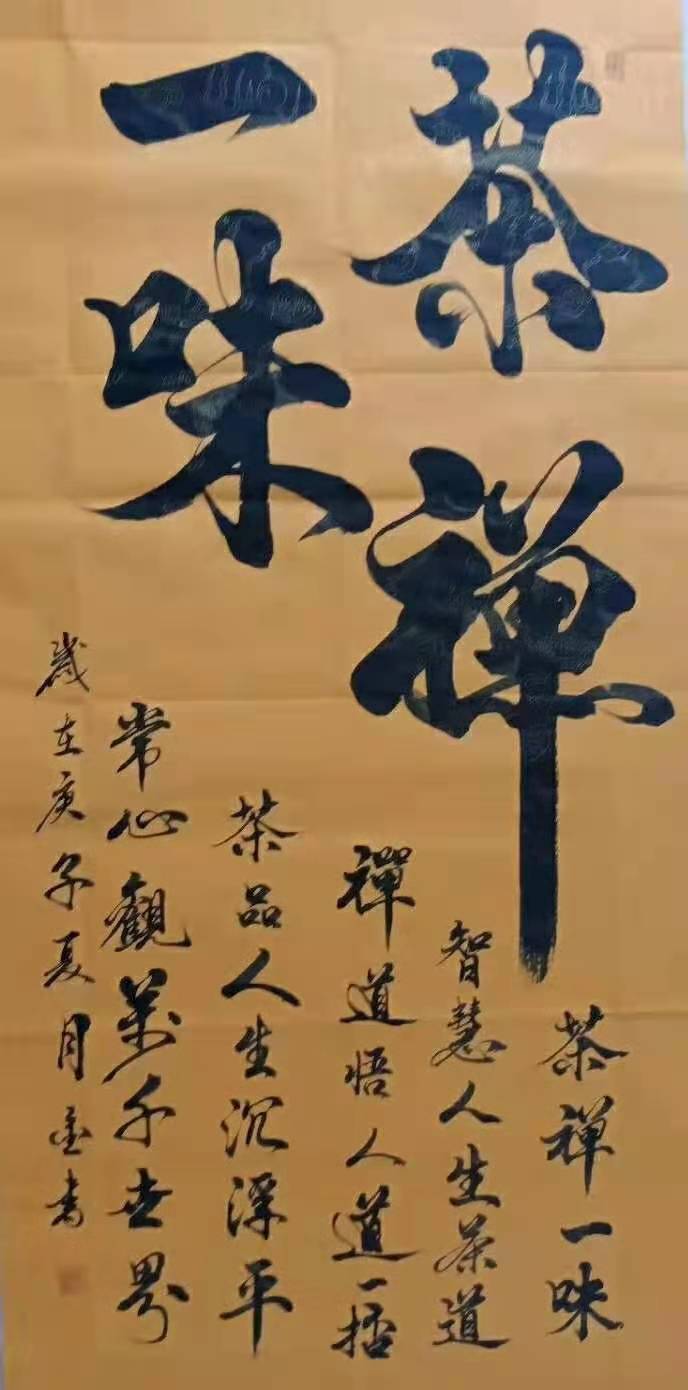 茶禅
一味
茶禅一味
智慧人生茶道
禪道悟人道一
茶品人生沉浮平
常心觀萬千世界
歲在庚子夏月書